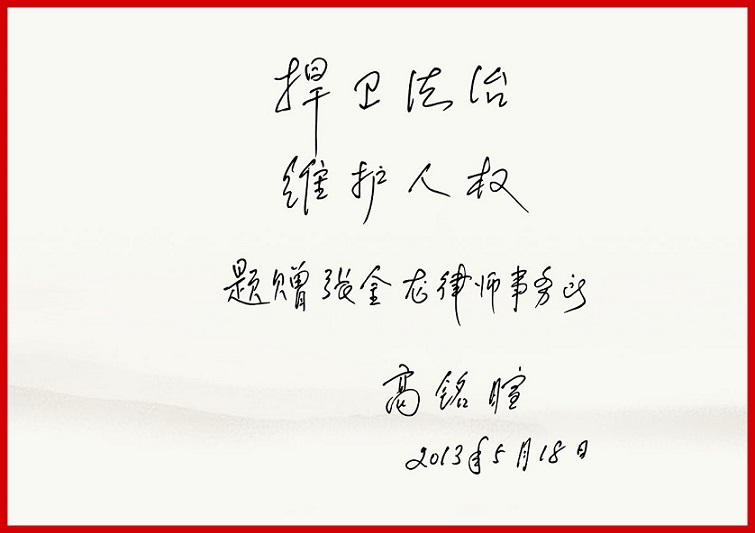 捍卫法治
维护人权
题赠张金龙律师事务所
高铭暄
2013年5月18日